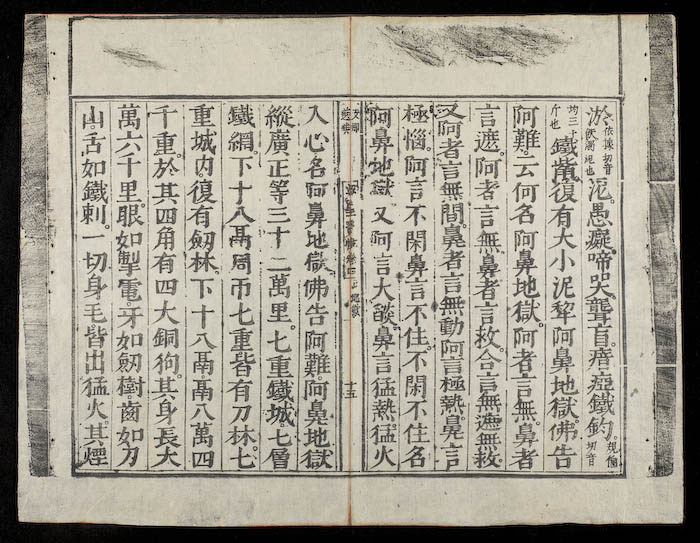 淤依據切音泥。愚癡啼哭聾盲。瘖瘂鐵鈎。規倫切音
均三十斤也鐵觜。復有大小泥犁阿鼻地獄。佛告
阿難。云何名阿鼻地獄。阿者言無。鼻者
言遮。阿者言無。鼻者言救。合言無遮無救。
又阿者言無間。鼻者言無動。阿言極熱。鼻言
極惱。阿言不閑。鼻言不住。不閑不住。名
阿鼻地獄。又阿言大燄。鼻言猛熱。猛火
十五
入心。名阿鼻地獄。佛告阿難。阿鼻地獄
縱廣正等三十二萬里。七重鐵城。七層
鐵網。下十八鬲。周帀七重。皆有刀林。七
重城內。復有劒林。下十八鬲。鬲八萬四
千重。於其四角有四大銅狗。其身長大
萬六千里。眼如掣電。牙如劒樹。齒如刀
山。舌如鐵刺。一切身毛皆出猛火。其煙